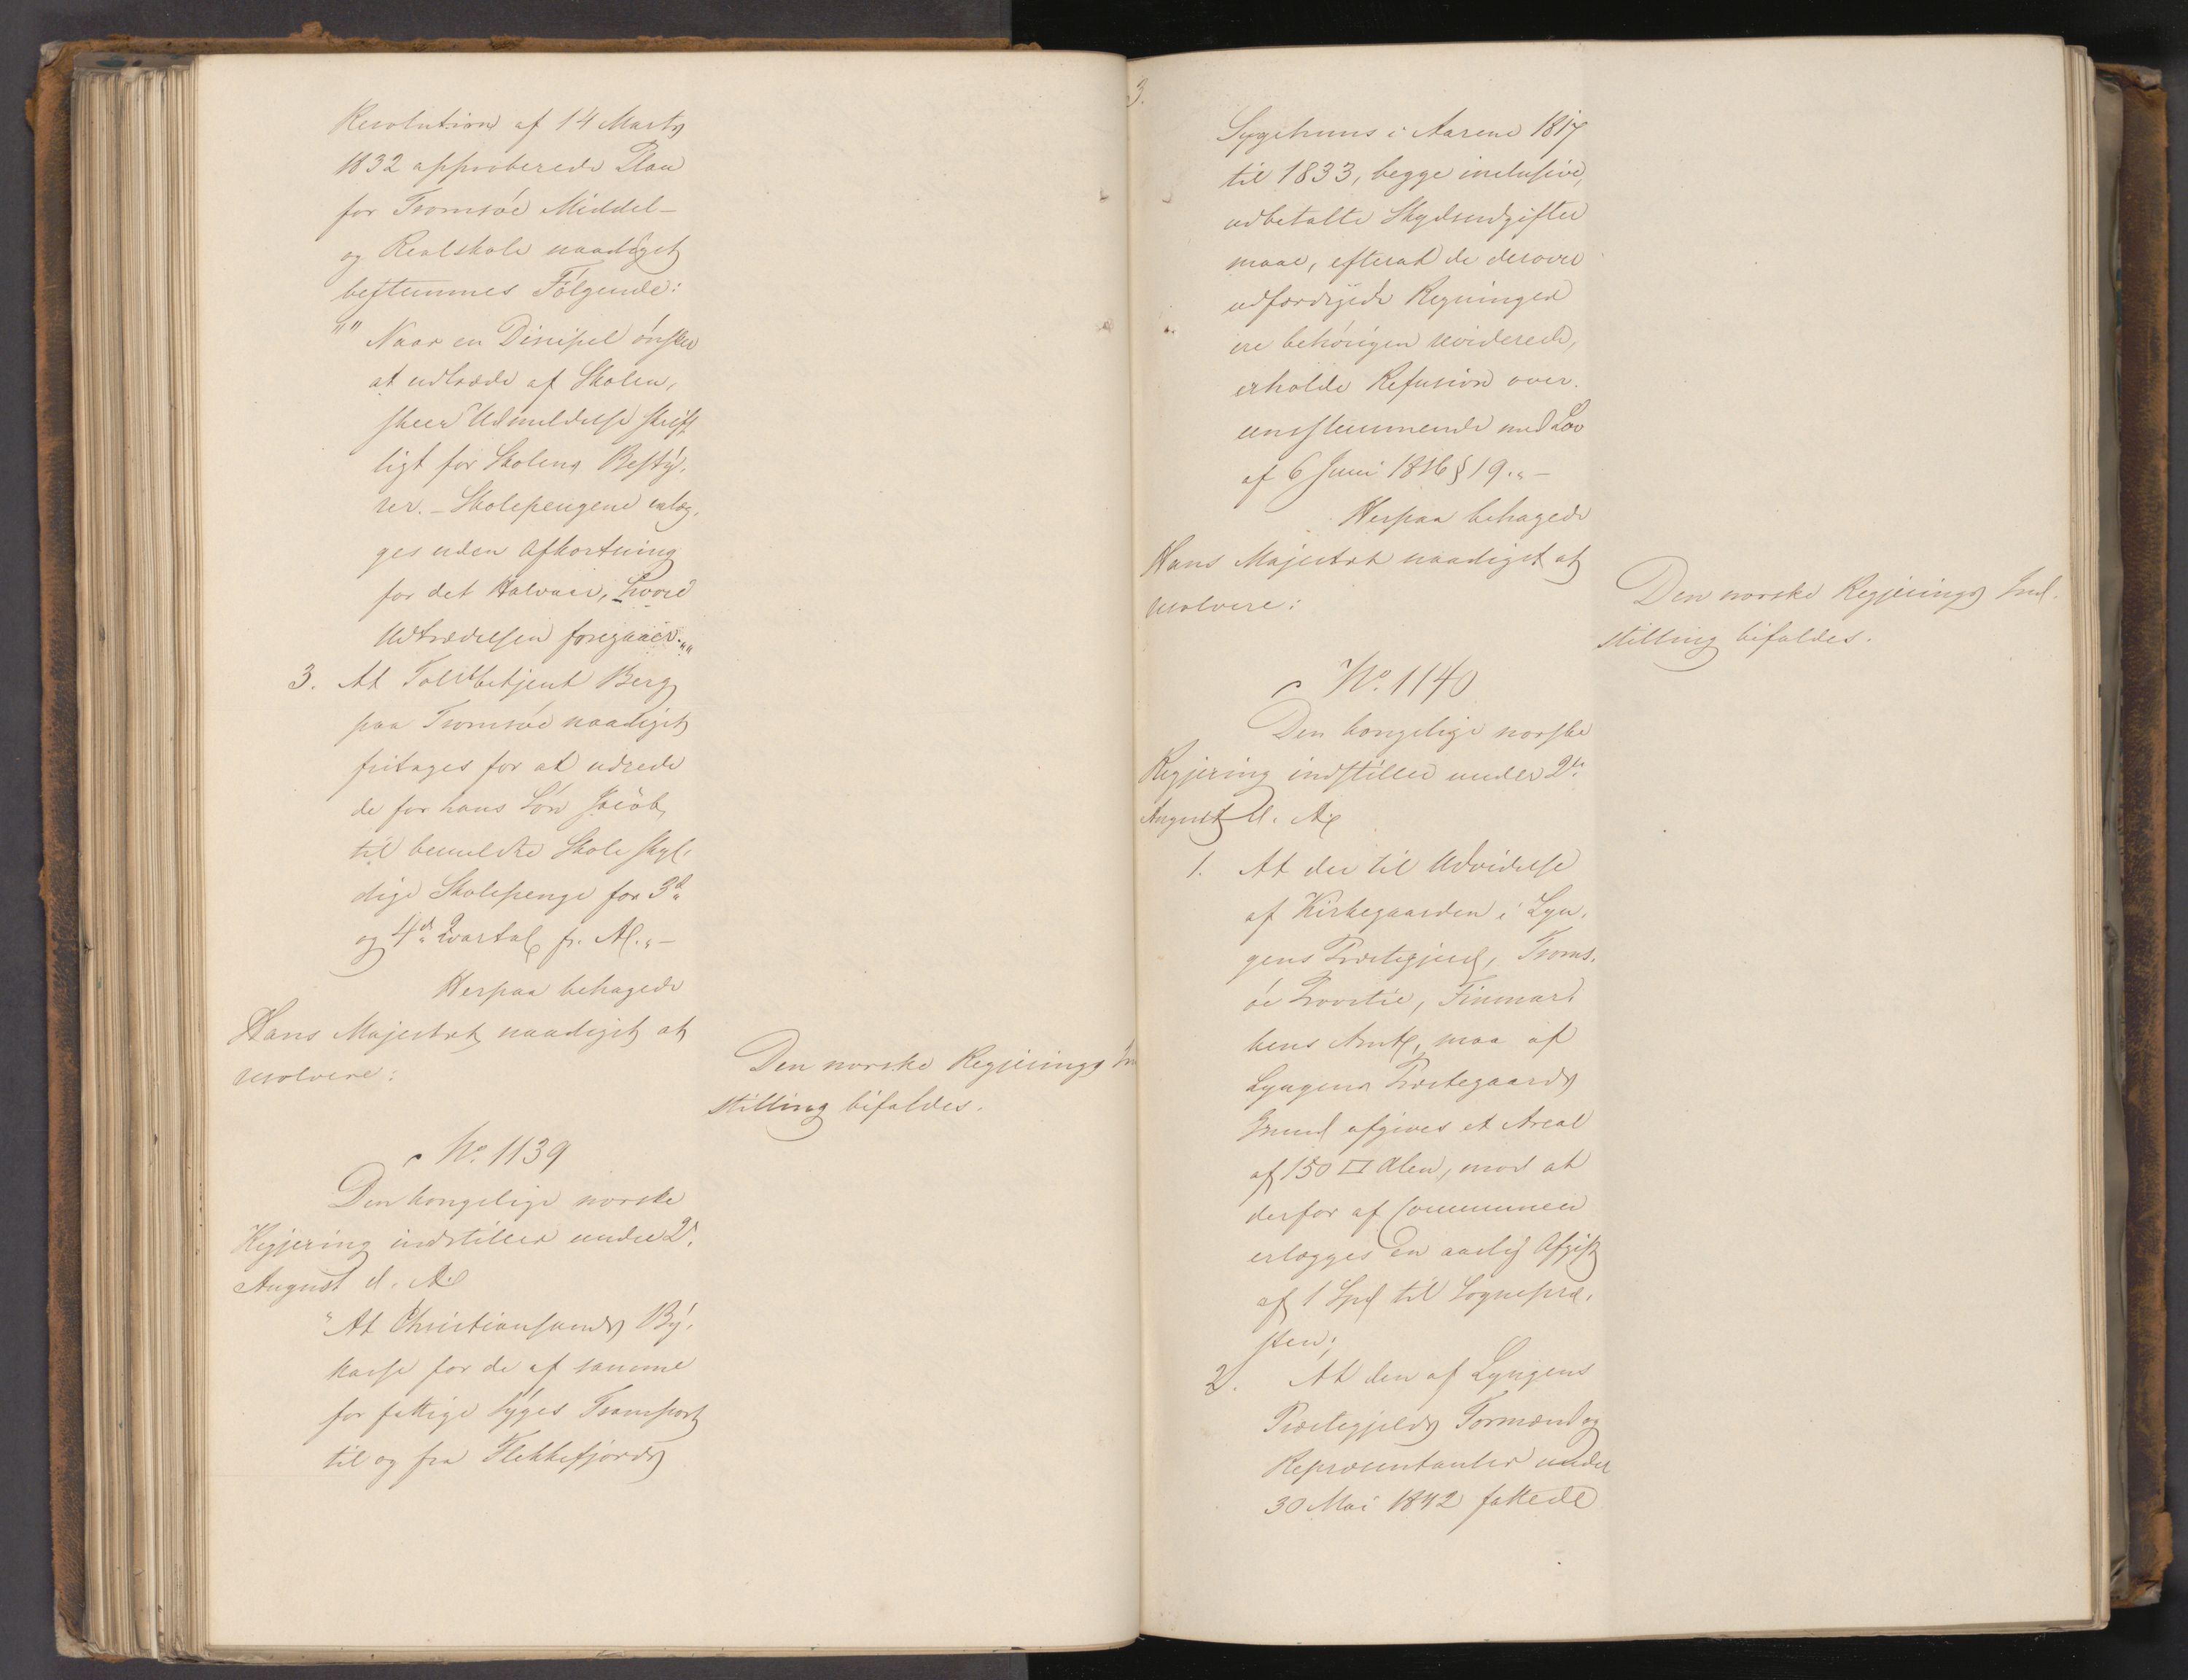 Resolution af 14 Marts
1832 approberede Plan
for Tromsöe Middel-
og Realskole naadigst
bestemmes Følgende:
"" Naar en Discipel ønsker
at udtræde af Skolen,
skeer Udmeldelse skrift
ligt for Skolens Besty-
rer. - Skolepengene erlæg-
ges uden Afkortning
for det Halvaar, hvori
Udtrædelsen foregaaer.""
3. At Toldbetjent Berg
paa Tromsöe naadigst
fritages for at udrede
de for hans Søn Jacob
til bemeldte Skole skyl-
dige Skolepenge for 3d
og 4d Qvartal f. A. " -
Herpaa behagede
Hans Majestæt naadigst at
resolvere:
Den norske Regjerings In
stilling bifaldes.
No. 1139
Den kongelige norske
Regjering indstiller under 2.
August d. A.
"At Christianssands By-
kasse for de af samme
for fattige Syges Transport
til og fra Flekkefjords
3.
Sygehuus i Aarene 1817
til 1833, begge inclusive,
udbetalte Skydsudgifter
maae, efterat de derover
udfærdigede Regninger
ere behørigen reviderede,
erholde Refusion over-
eensstemmende med Lov
af 6 Juni 1816 § 19." -
Herpaa behagede
Hans Majestæt naadigst at
resolvere:
Den norske Regjerings Ind-
stilling bifaldes.
No. 1140
Den kongelige norske
Regjering indstiller under 2de
August d. A.
1. At der til Udvidelse
af Kirkegaarden i Lyn-
gens Præstegjeld, Troms-
öe Provstie, Finmar-
kens Amt, maa af
Lyngens Præstegaards
Grund afgives et Areal
af 150 □ Alen, mod at
derfor af Communen
erlægges en aarlig Afgift
af 1 Spd til Sognepræ-
sten;
2. At den af Lyngens
Præstegjelds Formænd og
Repræsentanter under
30 Mai 1842 fattede